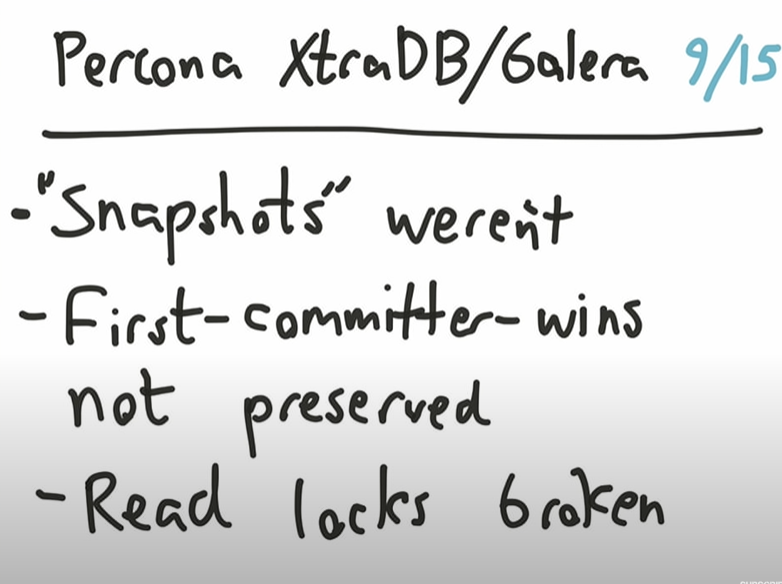 Percona XtraDB/Galera 9/15
- "Snapshots" weren't
- First-committer-wins
not preserved
- Read locks broken